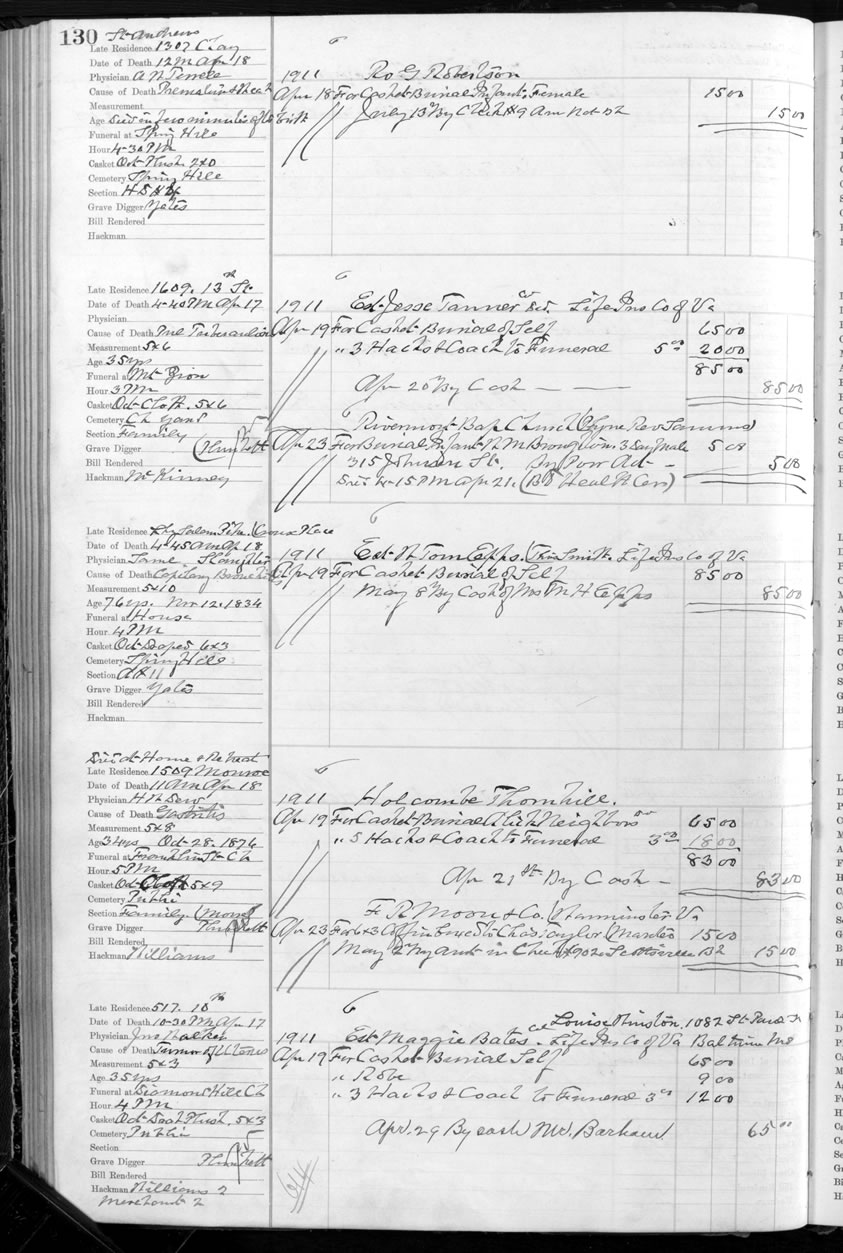 130 St Andrews
Late Residence 1307 Clay
Date of Death 12 M Apr 18
Physician A W Terrell
Cause of Death Premature
Measurement
Age died in few minutes after birth
Funeral at Spring Hill
Hour 4-30 PM
Casket Oct Plush 2x0
Cemetery Spring Hill
Section
Grave Digger Yates
Bill Rendered
Hackman
1911 Ro G Robertson
Apr 18 For Casket Burial Infant Female 15 00
By Check 9 Am Nat Bk 15 00
Late Residence 1609. 13th St
Date of Death 4-40 PM Apr 17
Physician
Cause of Death Pul Tuberculosis
Measurement 5x6
Age 35 yrs
Funeral at Mt Zion
Hour 3 PM
Casket Oct Cloth. 5x6
Cemetery Ch Yard
Section Family
Grave Digger
Bill Rendered
Hackman McKinney
1911 Est Jesse Tanner Col Life Ins Co of Va
Apr 19 For Casket Burial of Self 65 00
" 3 Hacks & Coach to Funeral 5 00 20 00
85 00
Apr 20 By Cash 85 00
Rivermont Bap Church
Apr 23 For Burial Infant R M Broughton 3 day Male 5 08
315 Johnson St. 5 08
Died 4-15 PM Apr 21. (Bd Health Cer)
Late Residence
Date of Death 4-45 AM Ap 18
Physician Saml Slaughter
Cause of Death Capillary Bronchitis
Measurement 5x10
Age 76 yrs. Nov 12. 1834
Funeral at House
Hour 4 PM
Casket Oct Draped 6x3
Cemetery Spring Hill
Section
Grave Digger Yates
Bill Rendered
Hackman
1911 Est Tom Epps. Life Ins Co of Va
Apr 19 For Casket Burial of Self 85 00
May 8 By Cash of Mrs M H Epps 85 00
Died at Home & Retreat
Late Residence 1509 Monroe
Date of Death 11 AM Apr 18
Physician H H Dew
Cause of Death Gastritis
Measurement 5x8
Age 34 yrs Oct 28. 1876
Funeral at Franklin St Ch
Hour 5 PM
Casket Oct Cloth 5x9
Cemetery Public
Section Family
Grave Digger
Bill Rendered
Hackman Williams
1911 Holcombe Thornhill.
Apr 19 For Casket Burial Neighbors 65 00
" 5 Hacks & Coach to Funeral 3 00 18 00
83 00
Apr 21st By Cash 83 00
F R Moon & Co. Warminster Va
Apr 23 For 6x3 Coffin Chas Taylor 15 00
May 2 By Amt in Check 902 Scottsville Bk 15 00
Late Residence 517. 10th
Date of Death 10-30 PM Apr 17
Physician Jno Walker
Cause of Death Tumor of Uterus
Measurement 5x3
Age 35 yrs
Funeral at Diamond Hill Ch
Hour 4 PM
Casket Oct Dash Plush. 5x3
Cemetery Public
Section
Grave Digger
Bill Rendered
Hackman Williams 2
Merchant 2
Louise Winston. 1082 St
1911 Est Maggie Bates Col Life Ins Co of Va Baltimore Md
Apr 19 For Casket Burial Self 65 00
" Robe 9 00
" 3 Hacks & Coach to Funeral 3 00 12 00
Apr. 29 By cash Mr. Barham 65 00